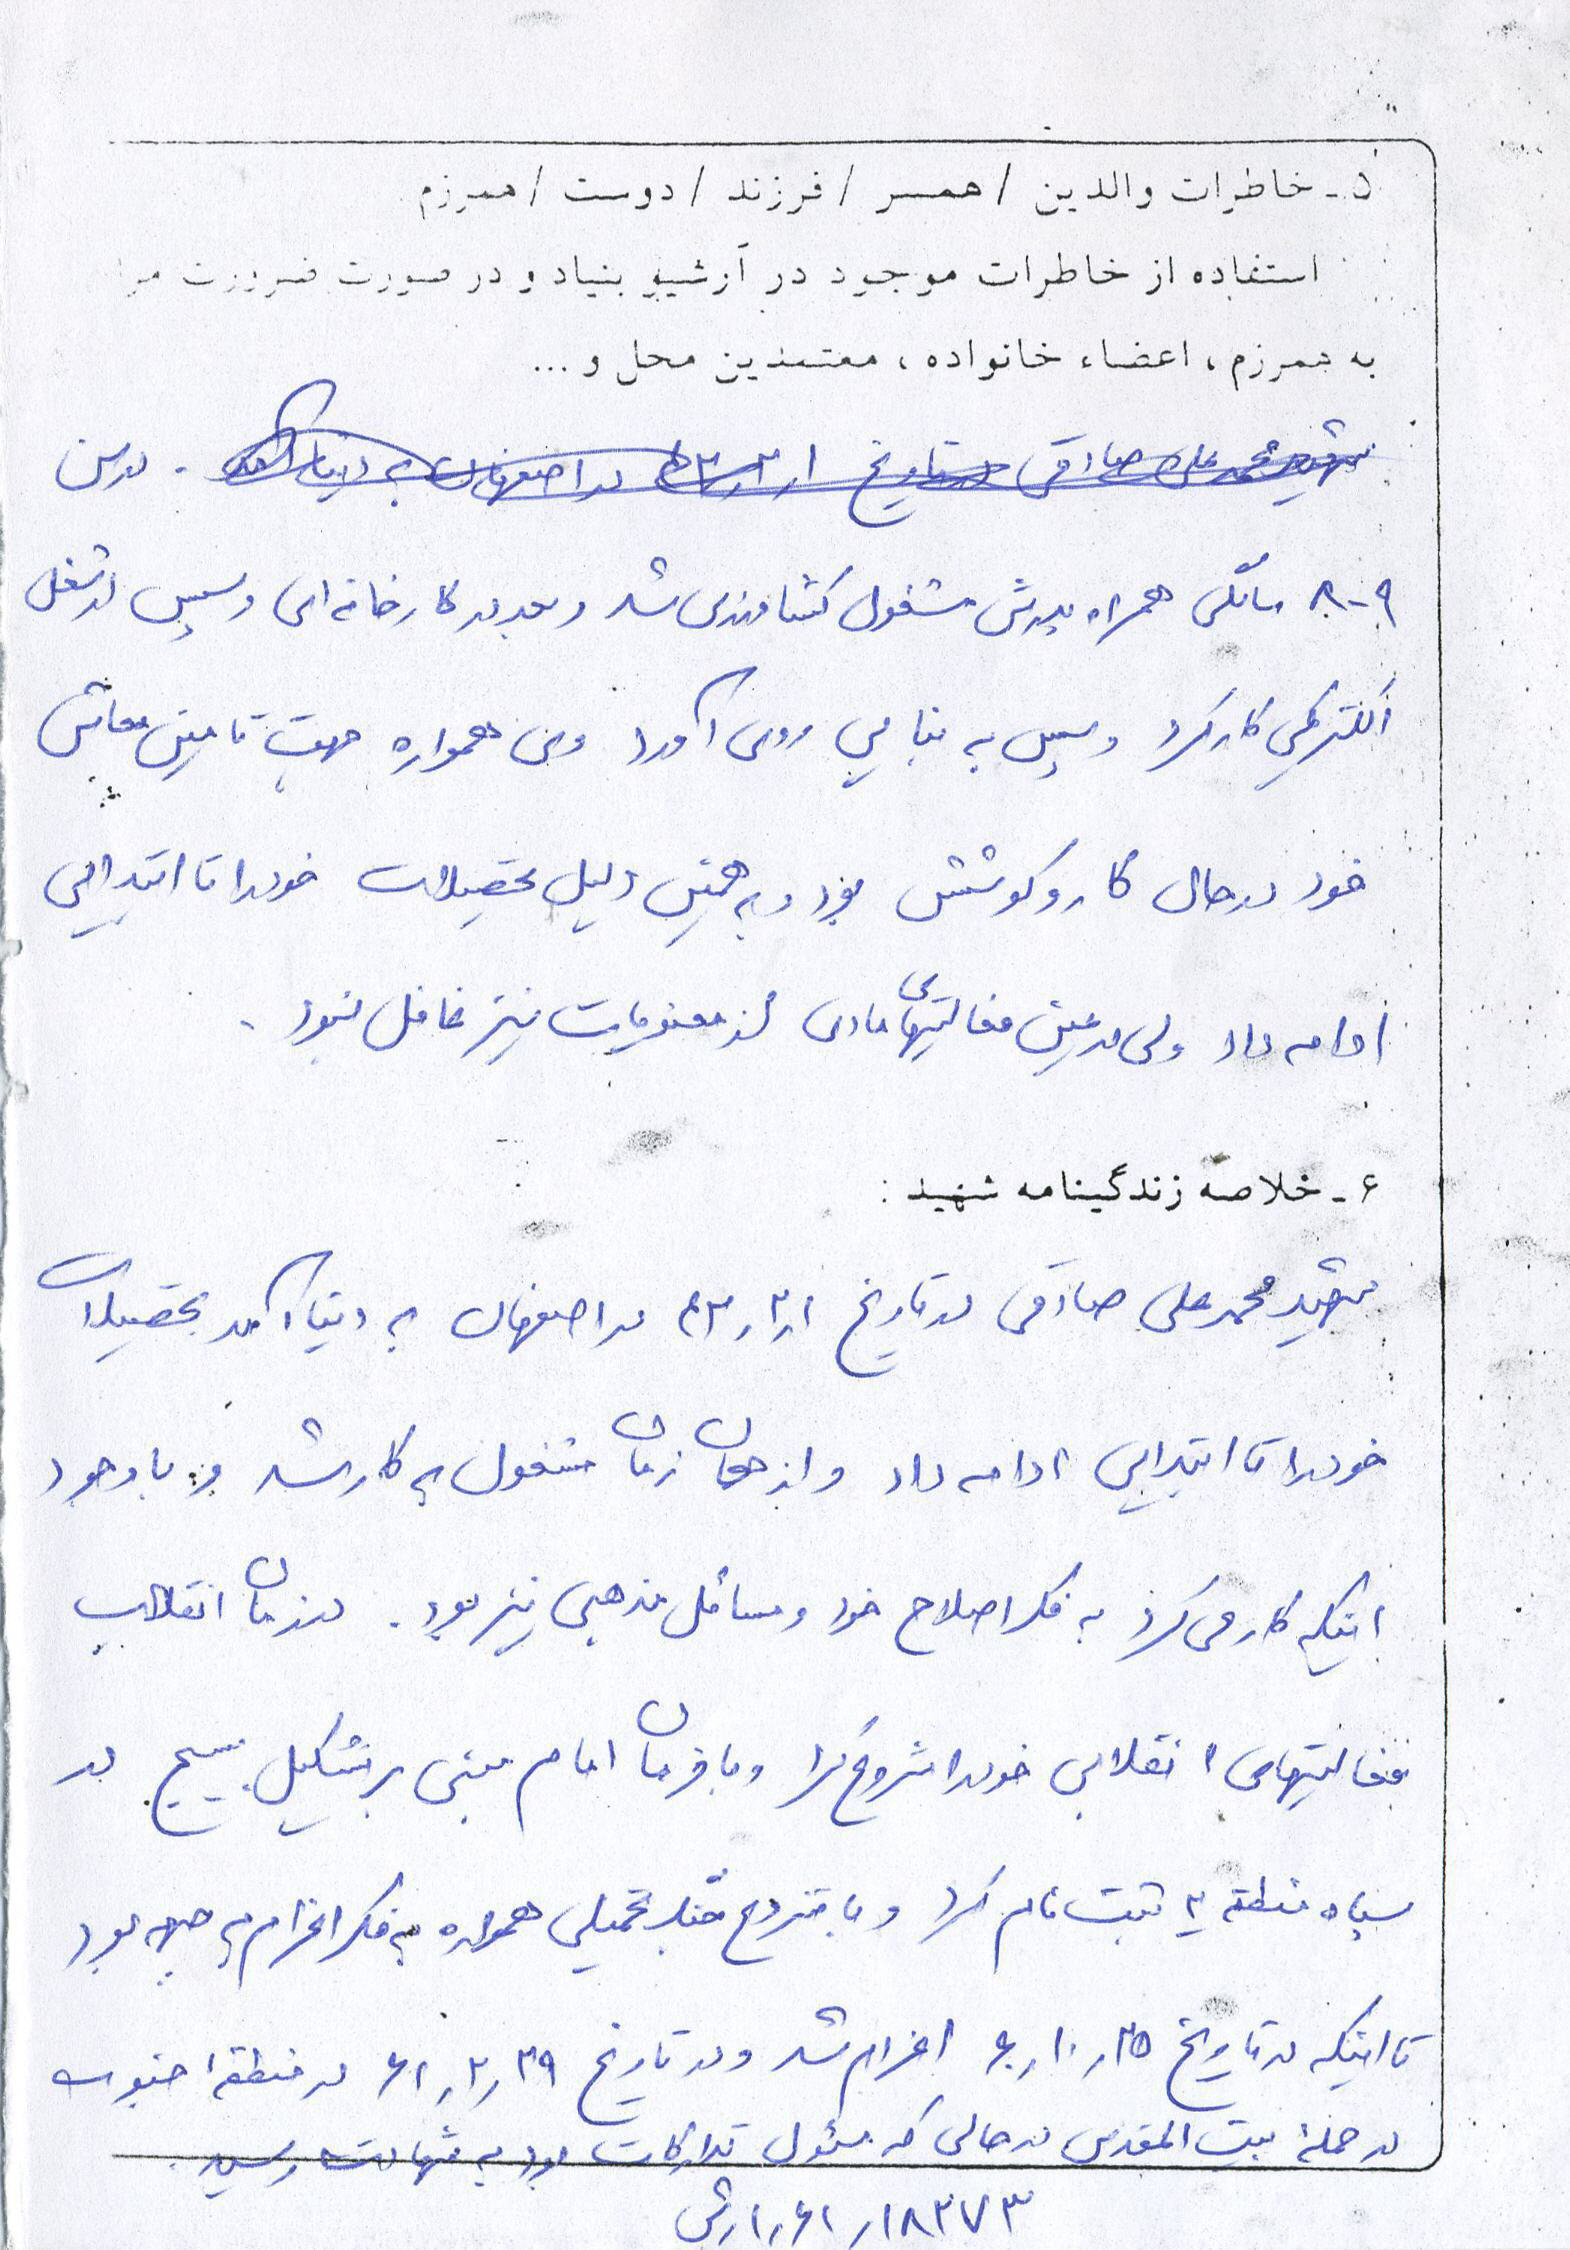 ۵ـ خاطرات والدین / همسر / فرزند / دوست / همرزم
استفاده از خاطرات موجود در آرشیو بنیاد و در صورت ضرورت
به همرزم ، اعضاء خانواده ، معتمدین محل و ...
شهید محمدعلی صادقی در تاریخ در اصفهان به دنیا آمد . در سن
۸-۹ سالگی همراه پدرش مشغول کشاورزی شد و بعد در کارخانه ای و سپس در شغل
الکتریکی کار کرد و سپس به بنایی روی آورد وی همواره جهت تامین معاش
خود در حال کار و کوشش بود و به همین دلیل تحصیلات خود را تا ابتدایی
ادامه داد ولی در عین فعالیتهای مادی از معنویات نیز غافل نبود .
۶ـ خلاصه زندگینامه شهید :
شهید محمدعلی صادقی در تاریخ در اصفهان به دنیا آمد تحصیلات
خود را تا ابتدایی ادامه داد و از همان زمان مشغول به کار شد و با وجود
اینکه کار می کرد به فکر اصلاح خود و مسائل مذهبی نیز بود . در زمان انقلاب
فعالیتهای انقلابی خود را شروع کرد و با فرمان امام مبنی بر تشکیل بسیج در
سپاه منطقه ۲ ثبت نام کرد و با شروع جنگ تحمیلی همواره به فکر اعزام به جبهه بود
تا اینکه در تاریخ ۲۵ر۱۰ر۶۰ اعزام شد و در تاریخ ۲۹ر۲ر۶۱ در منطقه جنوب
در حملهٔ بیت المقدس در حالی که مسئول تدارکات بود به شهادت رسید .
۱۸۳۷۳ر۶۱ر۱ر